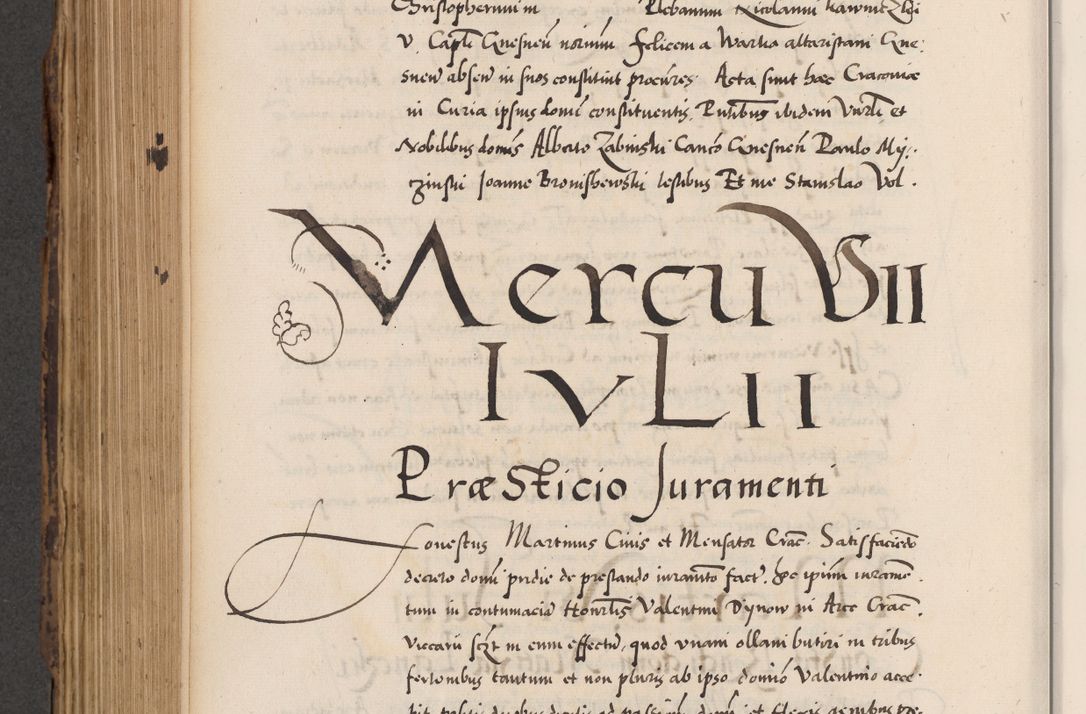 Christopherum in Plebanum Nicolaum
V. Capli Gnesneñ norium Felicem a Wartha altaristam Gne:
sneñ absen in suos constituit procures. Acta sunt hæc Cracoviæ
in Curia ipsius domini constituentis. Pntibus ibidem Venrli et
Nobilibus domis Alberto Zabinski Canco Gnesneñ Paulo Mij:
czinski Joanne Bronishewski testibus Et me Stanislao Vol.
Mercu VII
IVLII
Præsticio Juramenti
Honestus Martinus Civis et Mensator Crac. Satisfaciendo
decreto domi pridie de prestando iuramto fact. Hoc ipsum iurame.
tum in contumacia Honrlis Valentini Dijnow in Arce Crac.
Viccarii fczt in eum effectu, quod unam ollam butiri in tribus
fertonibus tantum et non pluris ab ipso domino Valentino acce.